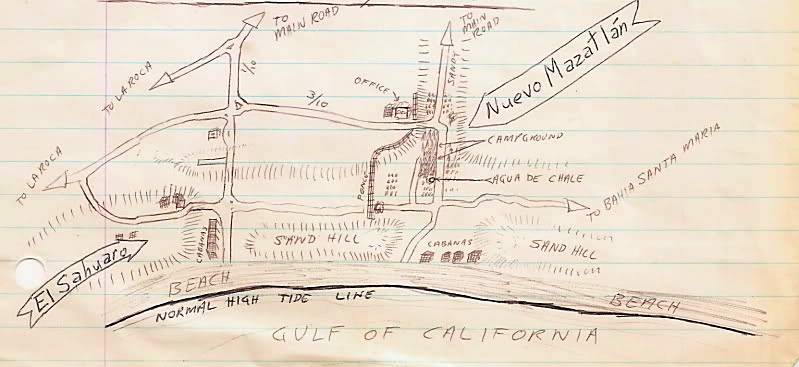 TO
MAIN ROAD
TO
MAIN
ROAD
Nuevo Mazatlán
TO LA ROCA
1/10
SANDY
OFFICE
3/10
CAMPGROUND
TO LA ROCA
AGUA DE CHALE
TO BAHIA SANTA MARIA
CABANAS
SAND HILL
CABANAS
SAND HILL
El Sahuaro
BEACH
BEACH
NORMAL HIGH TIDE LINE
GULF OF CALIFORNIA